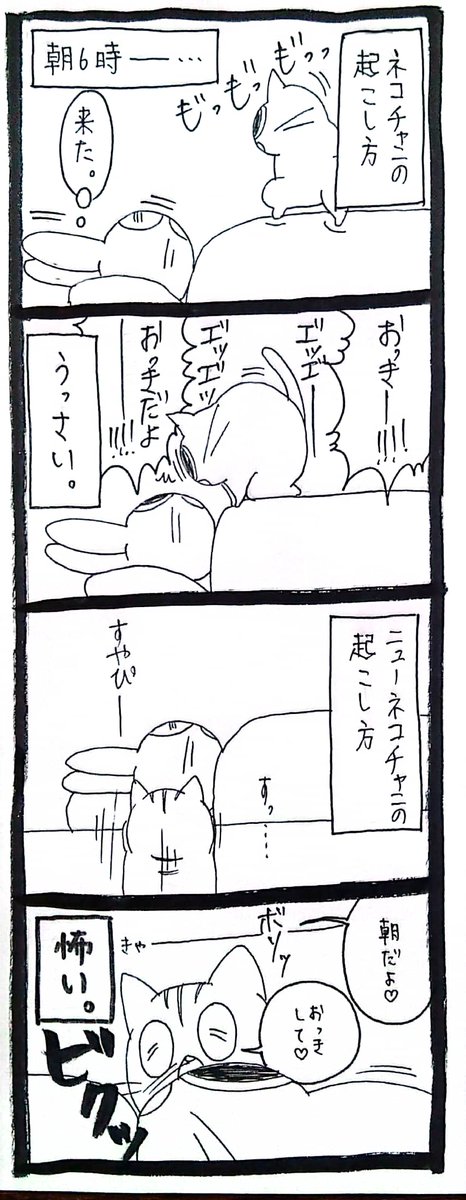 ネコチャンの
起こし方
朝6時――…
もっもっもっっ
来た。
おっきー!!!!
エッエー
エッエッ
おっきだよ
!!!!
うっさい。
ニューネコチャンの
起こし方
すっ……
すやぴー
朝だよ♡
ボソッ
おっき
して♡
きゃー
怖い。
ビクッ